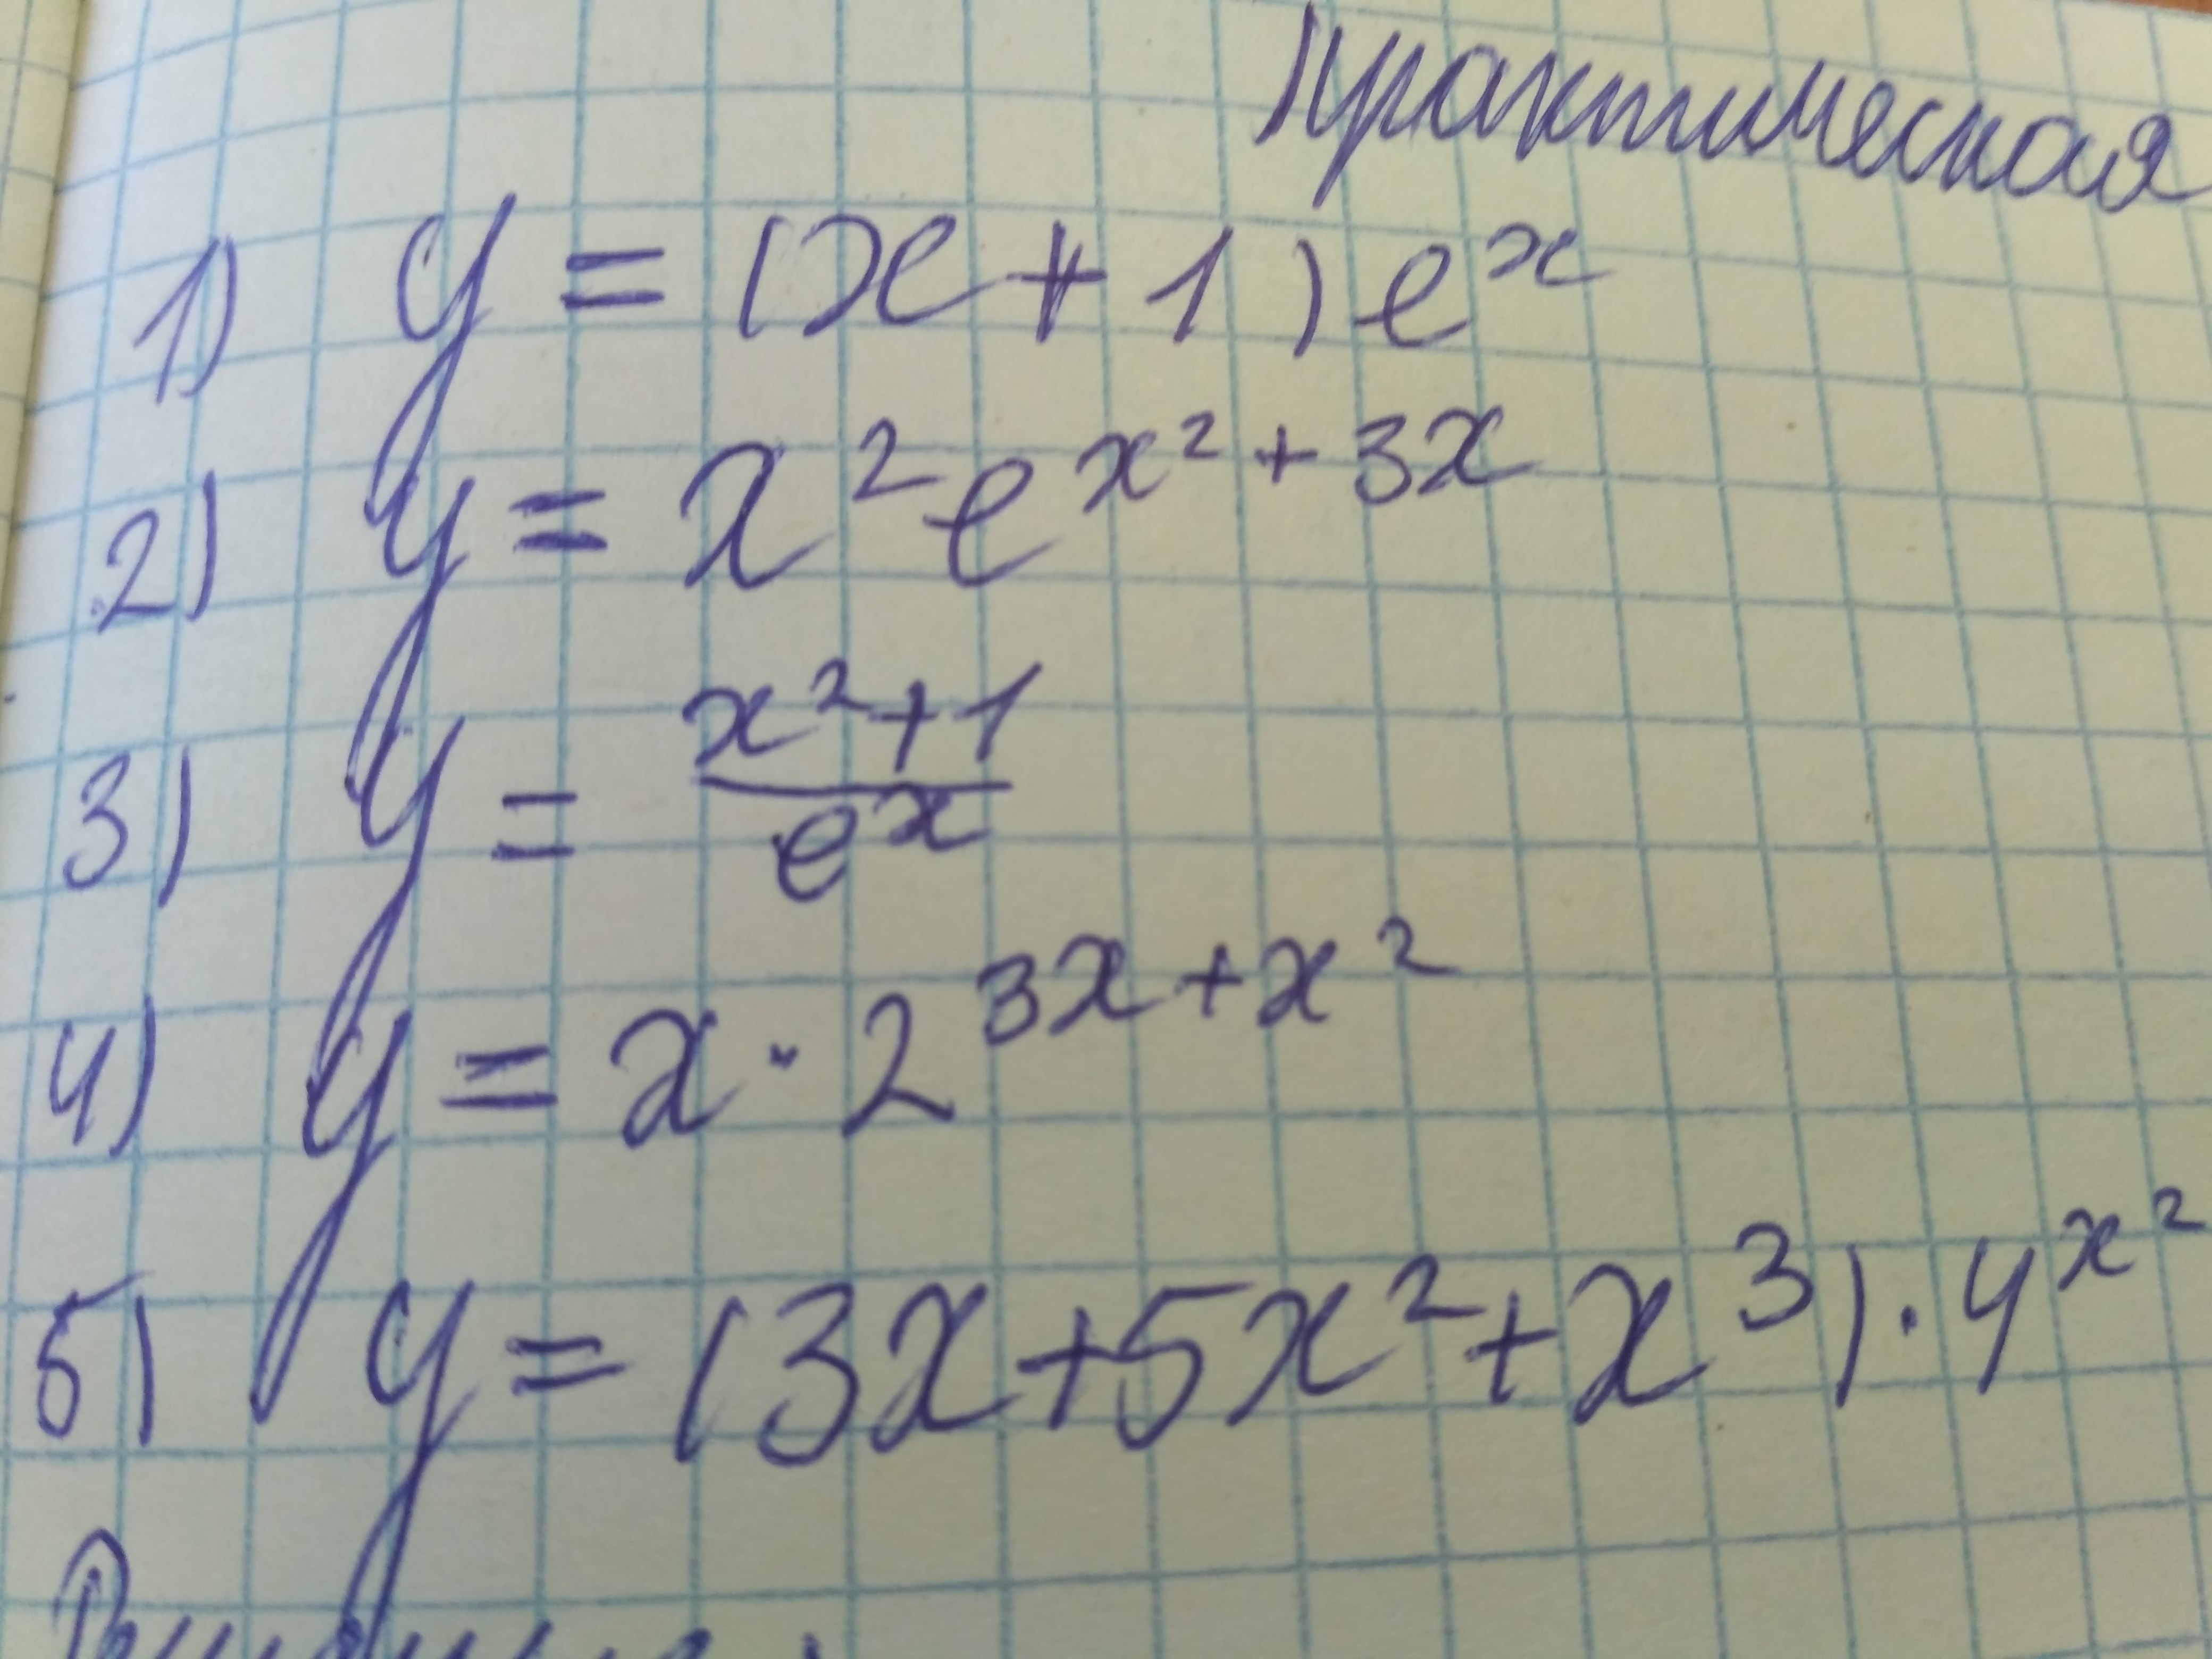 Практическая
1) y = (x + 1) eˣ
2) y = x² e^(x² + 3x)
3) y = (x² + 1) / eˣ
4) y = x · 2^(3x + x²)
5) y = (3x + 5x² + x³) · 4^(x²)